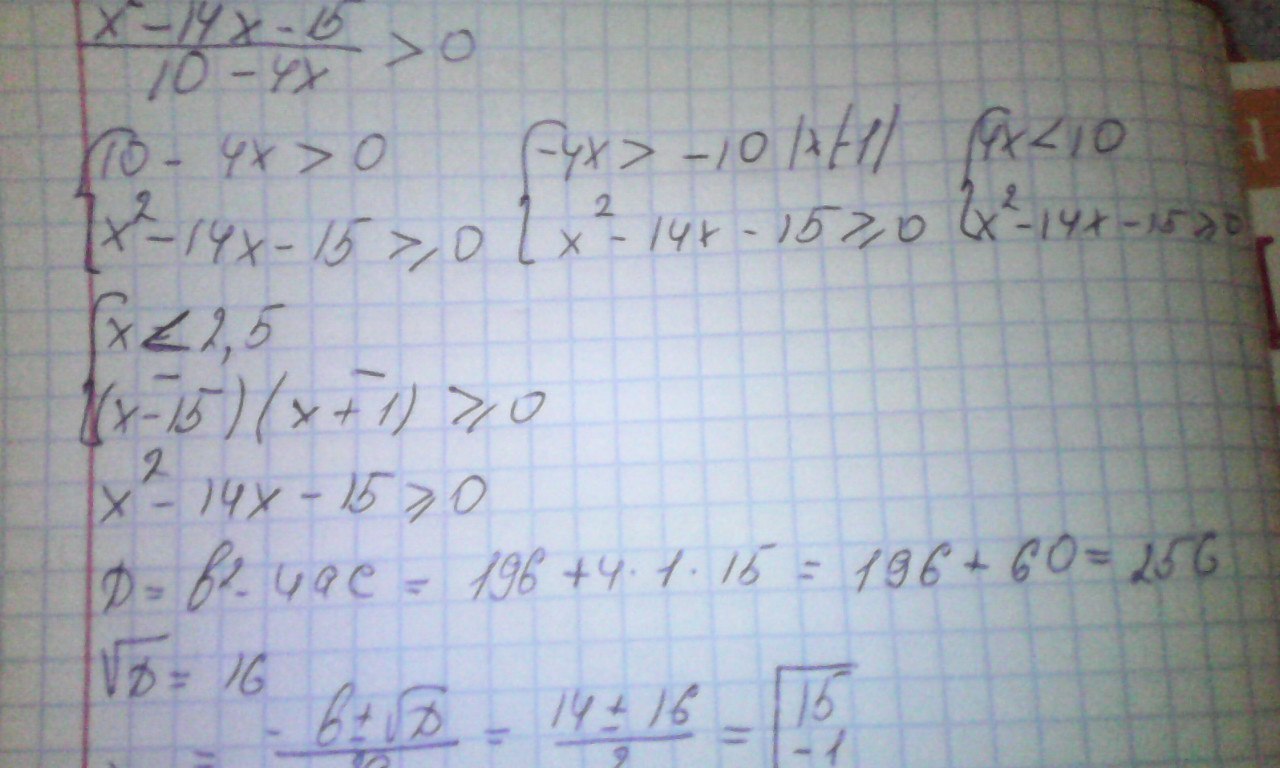 x² - 14x - 15
10 - 4x > 0
{10 - 4x > 0 {-4x > -10 |x(-1) {4x < 10
{x² - 14x - 15 ⩾ 0 {x² - 14x - 15 ⩾ 0 {x² - 14x - 15 ⩾ 0
{x < 2,5
{(x - 15)(x + 1) ⩾ 0
x² - 14x - 15 ⩾ 0
D = b² - 4ac = 196 + 4·1·15 = 196 + 60 = 256
√D = 16
= -b ± √D = 14 ± 16 = [15
2 -1